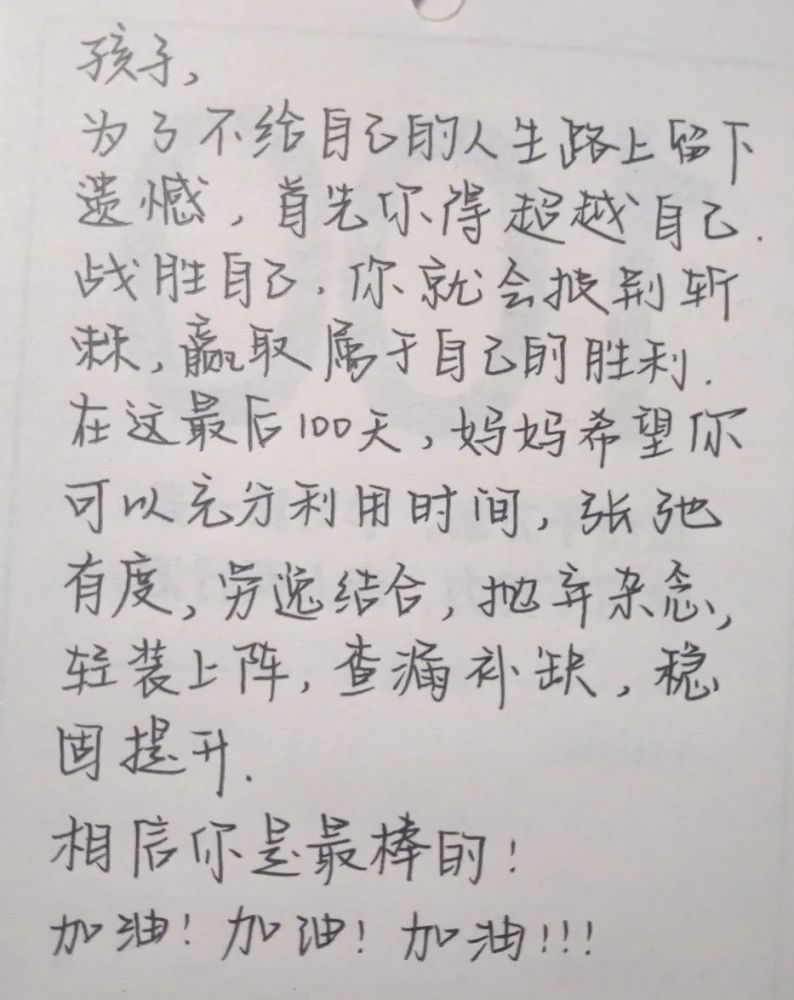 孩子，
为了不给自己的人生路上留下
遗憾，首先你得超越自己.
战胜自己.你就会披荆斩
棘，赢取属于自己的胜利.
在这最后100天，妈妈希望你
可以充分利用时间，张弛
有度，劳逸结合，抛弃杂念，
轻装上阵，查漏补缺，稳
固提升.
相信你是最棒的！
加油！加油！加油！！！